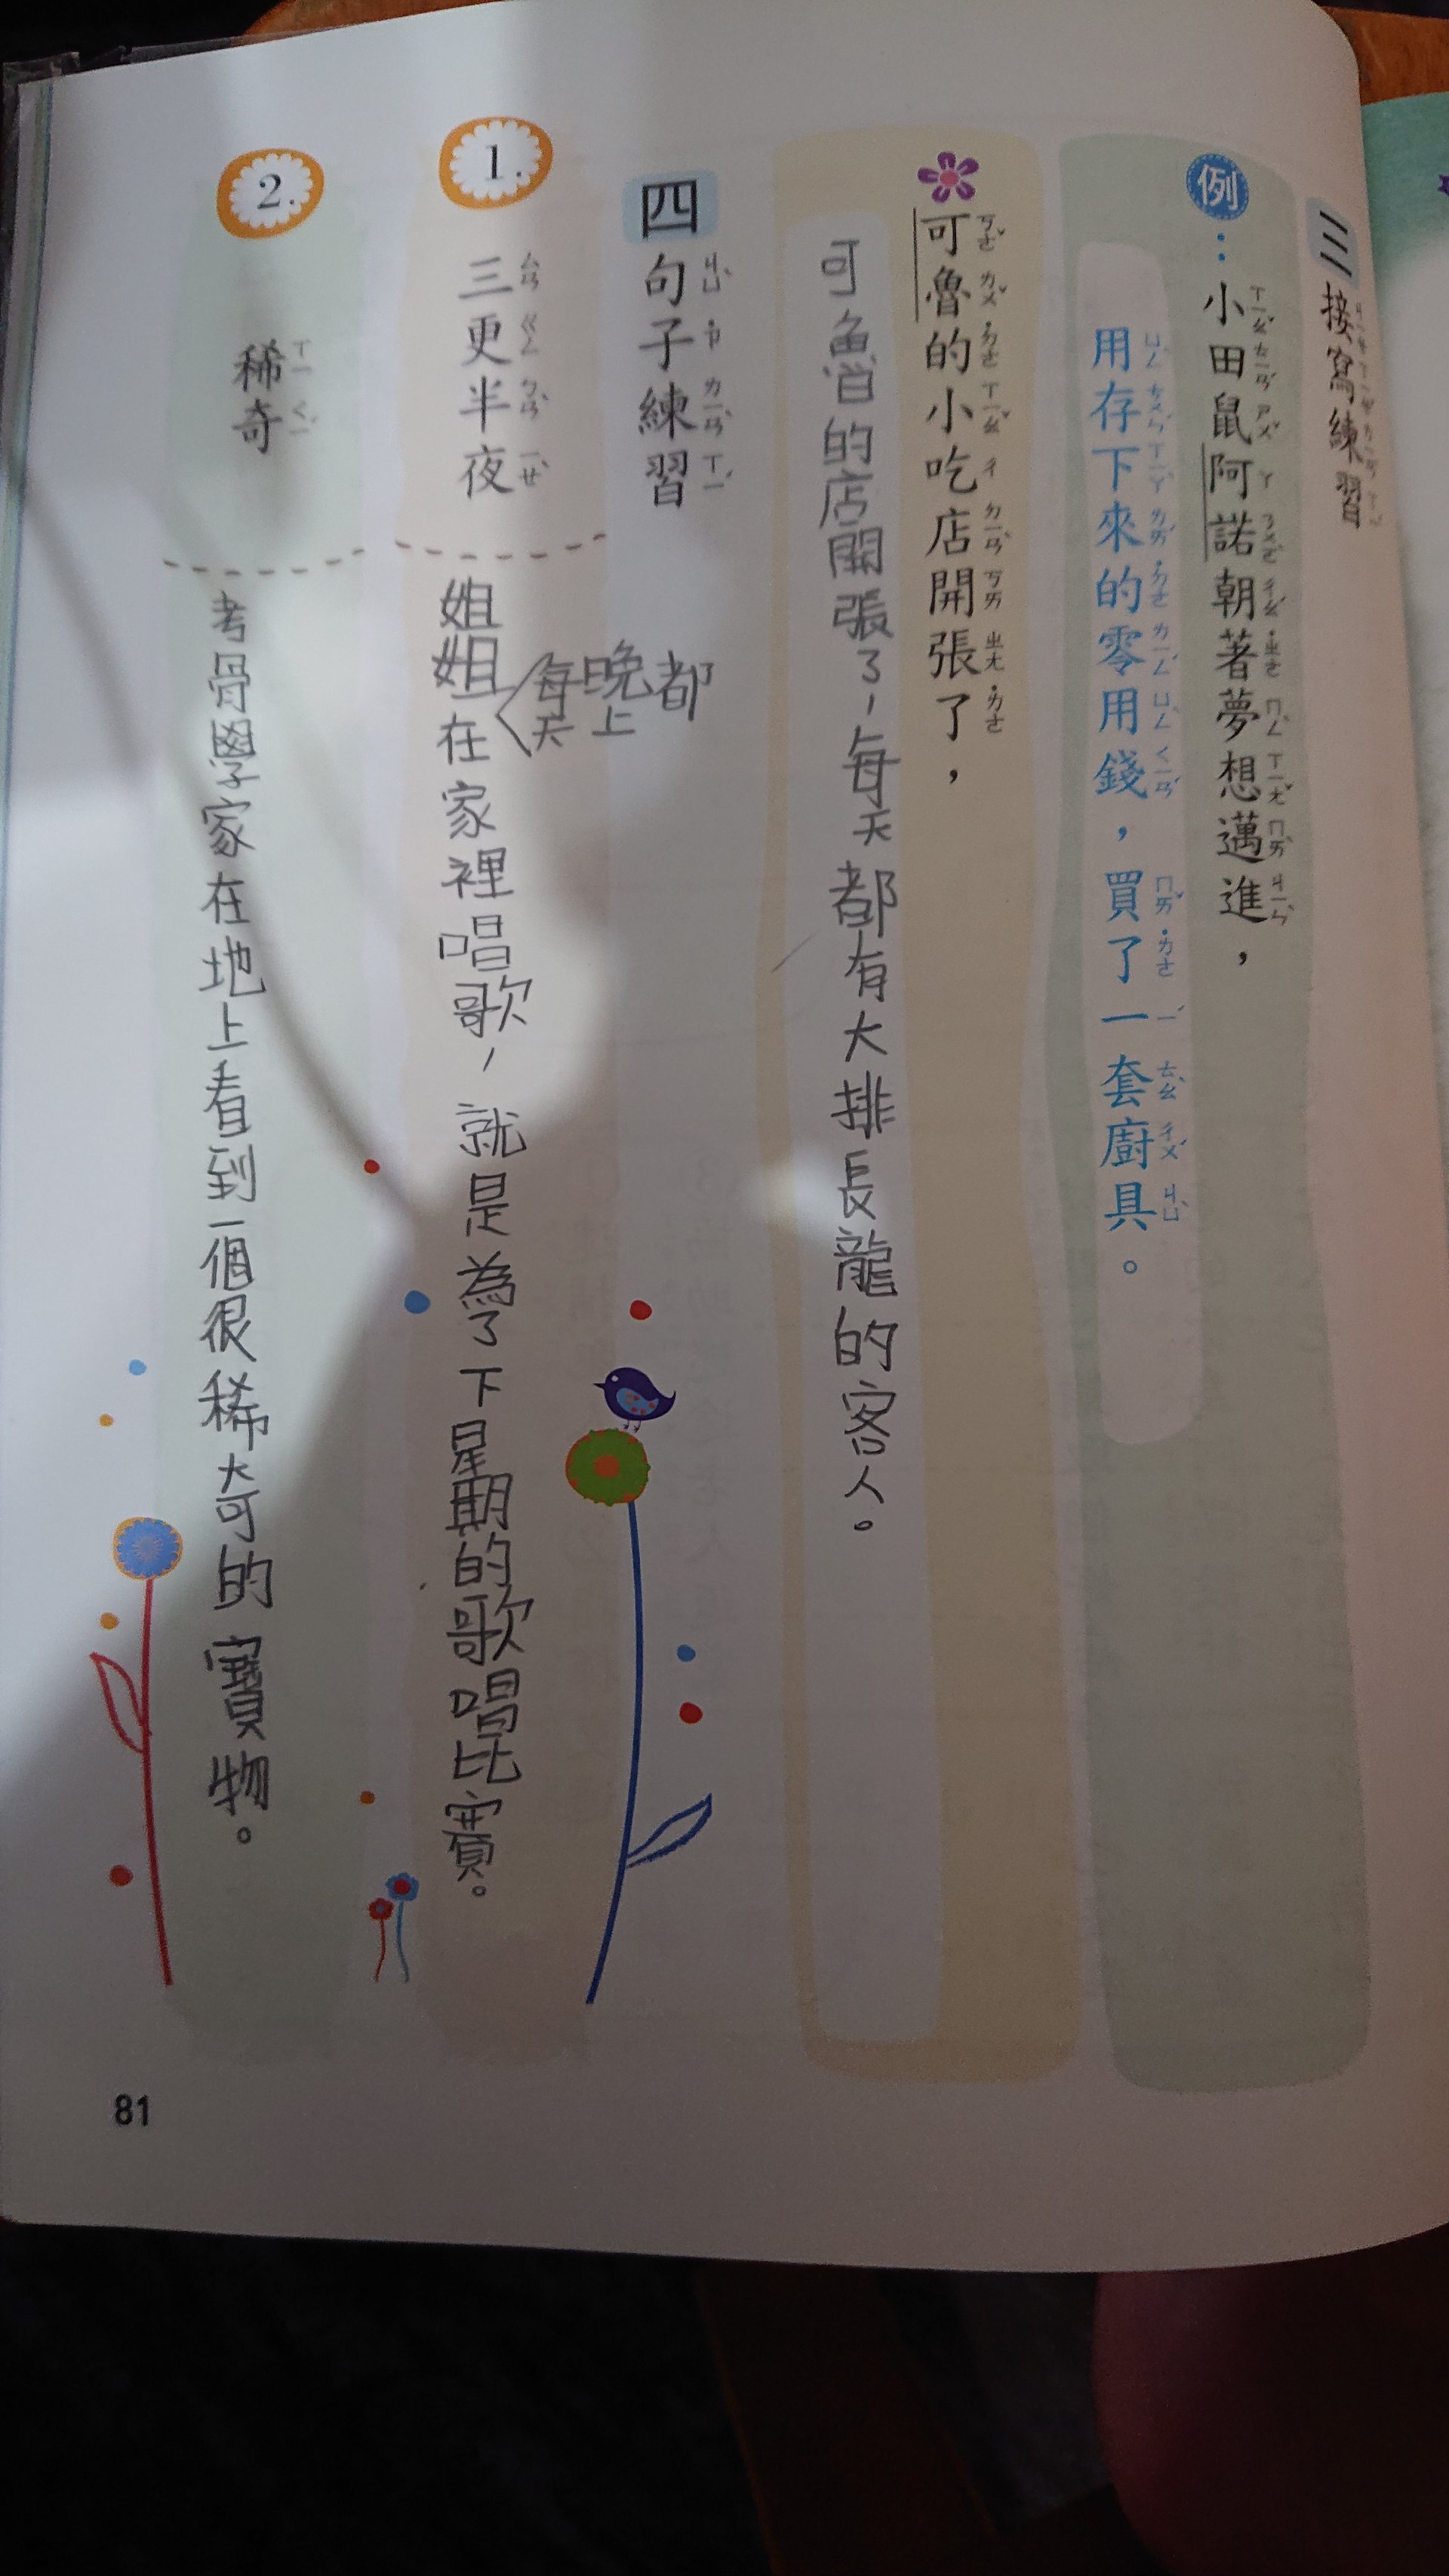 三 接寫練習
例：小田鼠阿諾朝著夢想邁進，
用存下來的零用錢，買了一套廚具。
可魯的小吃店開張了，
可魯的店開張了，每天都有大排長龍的客人。
四 句子練習
1. 三更半夜
姐姐每天晚上都在家裡唱歌，就是為了下星期的歌唱比賽。
2. 稀奇
考骨學家在地上看到一個很稀奇的寶物。
81